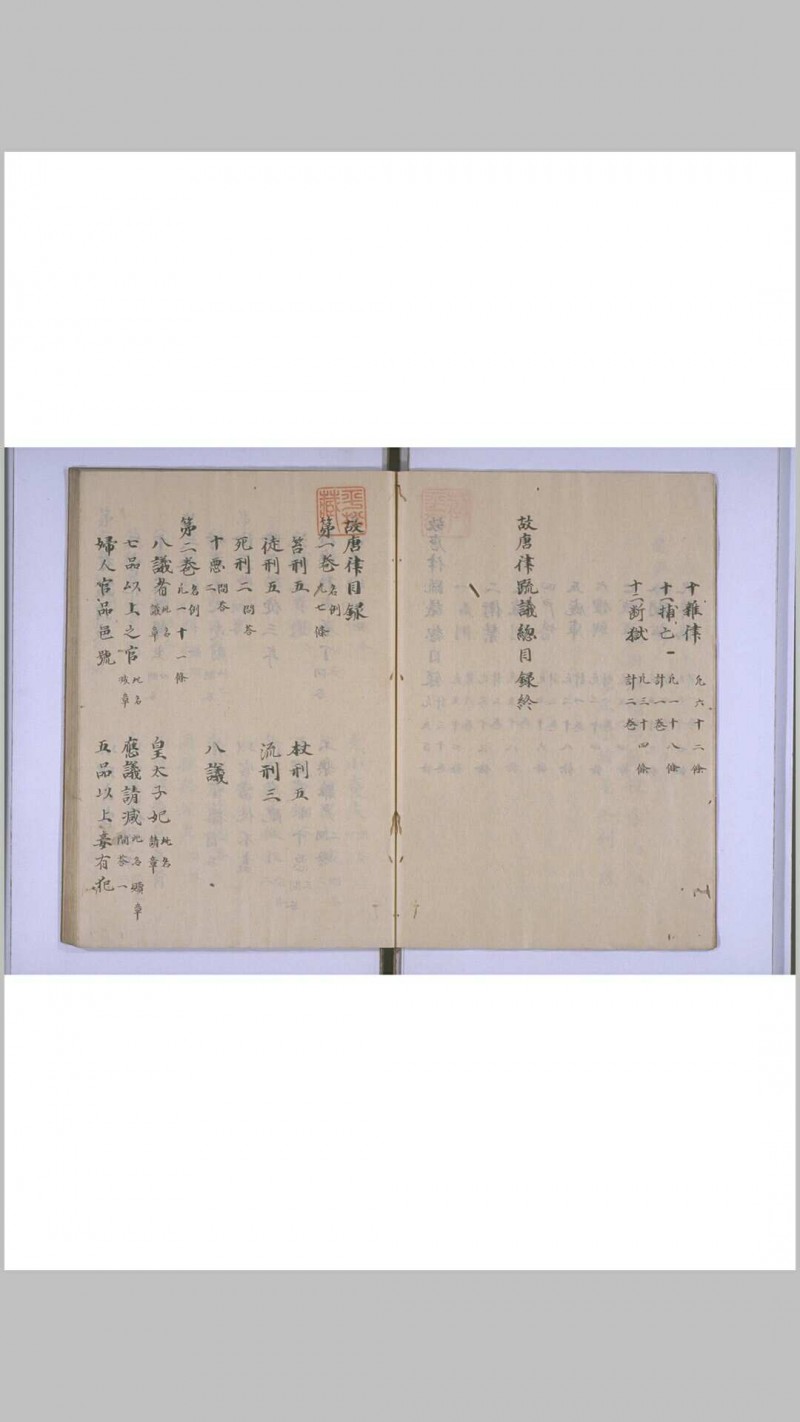 十雜律 凡六十二條
十一捕亡 凡一十八條 計一卷
十二斷獄 凡三十四條 計二卷
故唐律疏議總目録終
故唐律目録
第一卷 名例 凡七條
笞刑五 杖刑五
徒刑五 流刑三
死刑二 問答
十惡 問答二 八議
第二卷 名例 凡一十一條
八議者 此名議章 皇太子妃 此名請章
七品以上之官 此名減章 應議請减 此名贖章 問答一
婦人官品邑號 五品以上妾有犯